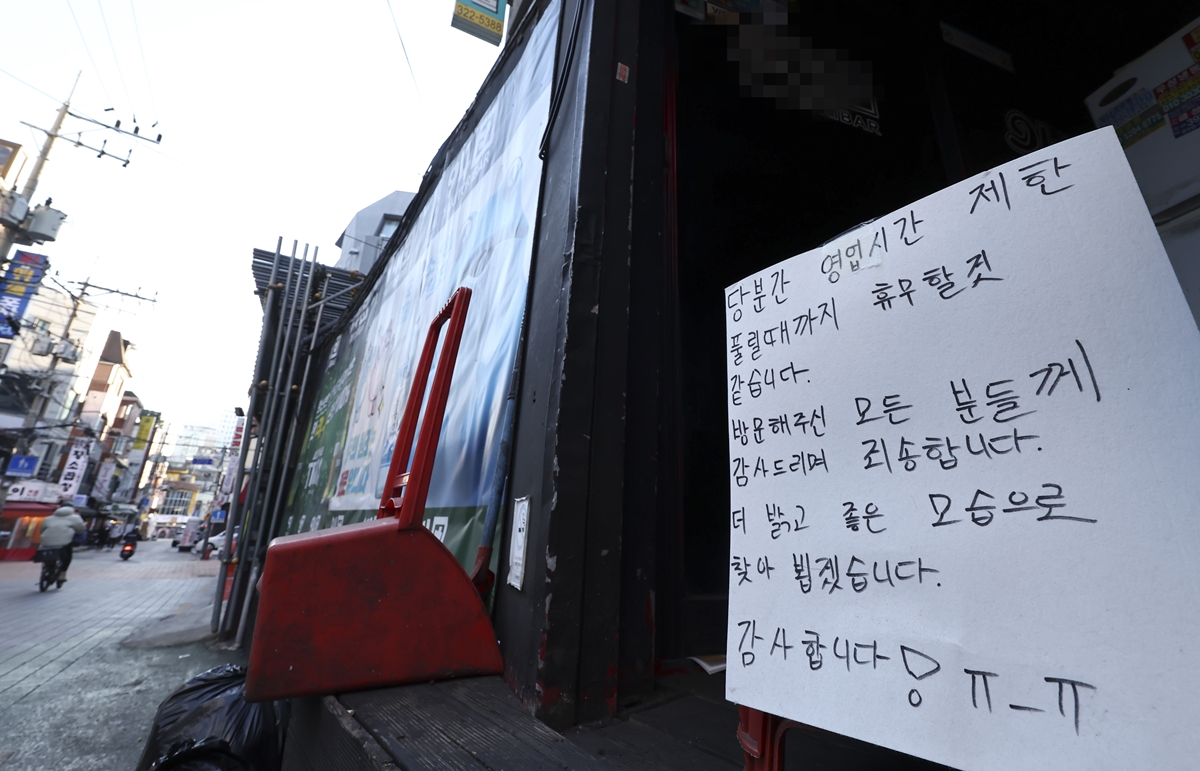 322-5388
BAR
당분간 영업시간 제한
풀릴때까지 휴무할것
같습니다.
방문해주신 모든 분들께
감사드리며 죄송합니다.
더 밝고 좋은 모습으로
찾아 뵙겠습니다.
감사합니다! ㅠ_ㅠ